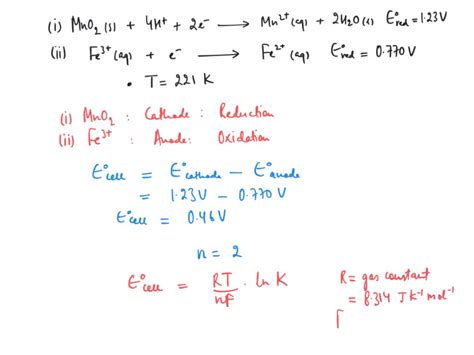 (i) MnO₂(s) + 4H⁺ + 2e⁻ ⟶ Mn²⁺(aq) + 2H₂O(s) E°red = 1.23V
(ii) Fe³⁺(aq) + e⁻ ⟶ Fe²⁺(aq) E°red = 0.770V
• T = 221 K
(i) MnO₂ : Cathode : Reduction
(ii) Fe³⁺ : Anode : Oxidation
E°cell = E°cathode − E°anode
= 1.23V − 0.770V
E°cell = 0.46V
n = 2
E°cell = RT/nF · ln K
R = gas constant
= 8.314 JK⁻¹mol⁻¹